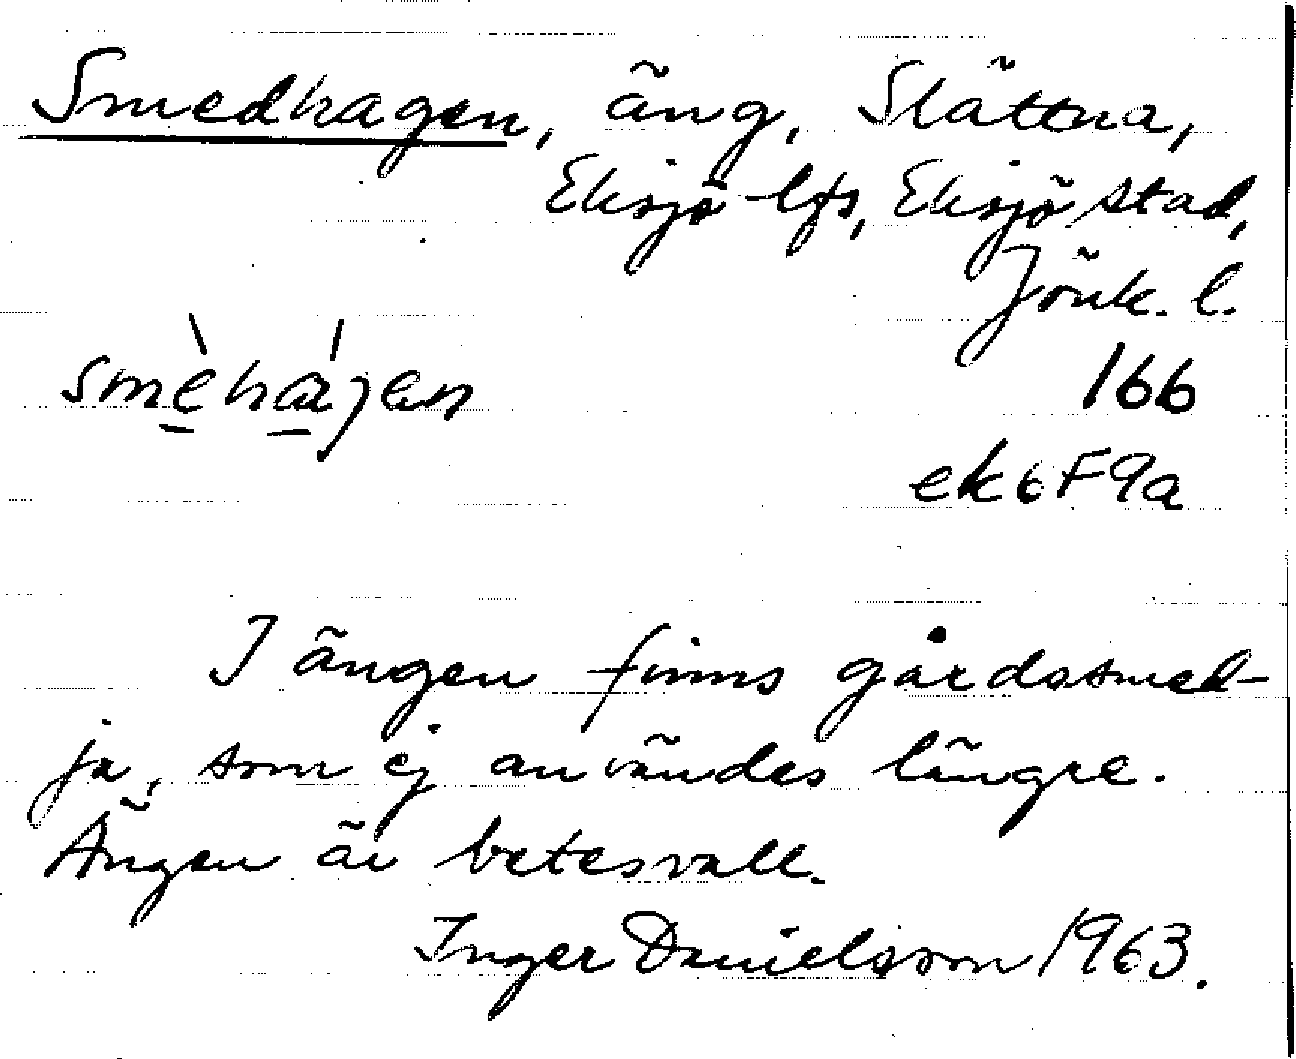 Smedhagen, äng, Slättna,
Eksjö lfs, Eksjö stad,
Jönk. l.
smèhájen
166
ek6F9a
I ängen finns gårdssmed-
ja, som ej användes längre.
Ängen är betesvall.
Inger Danielsson 1963.